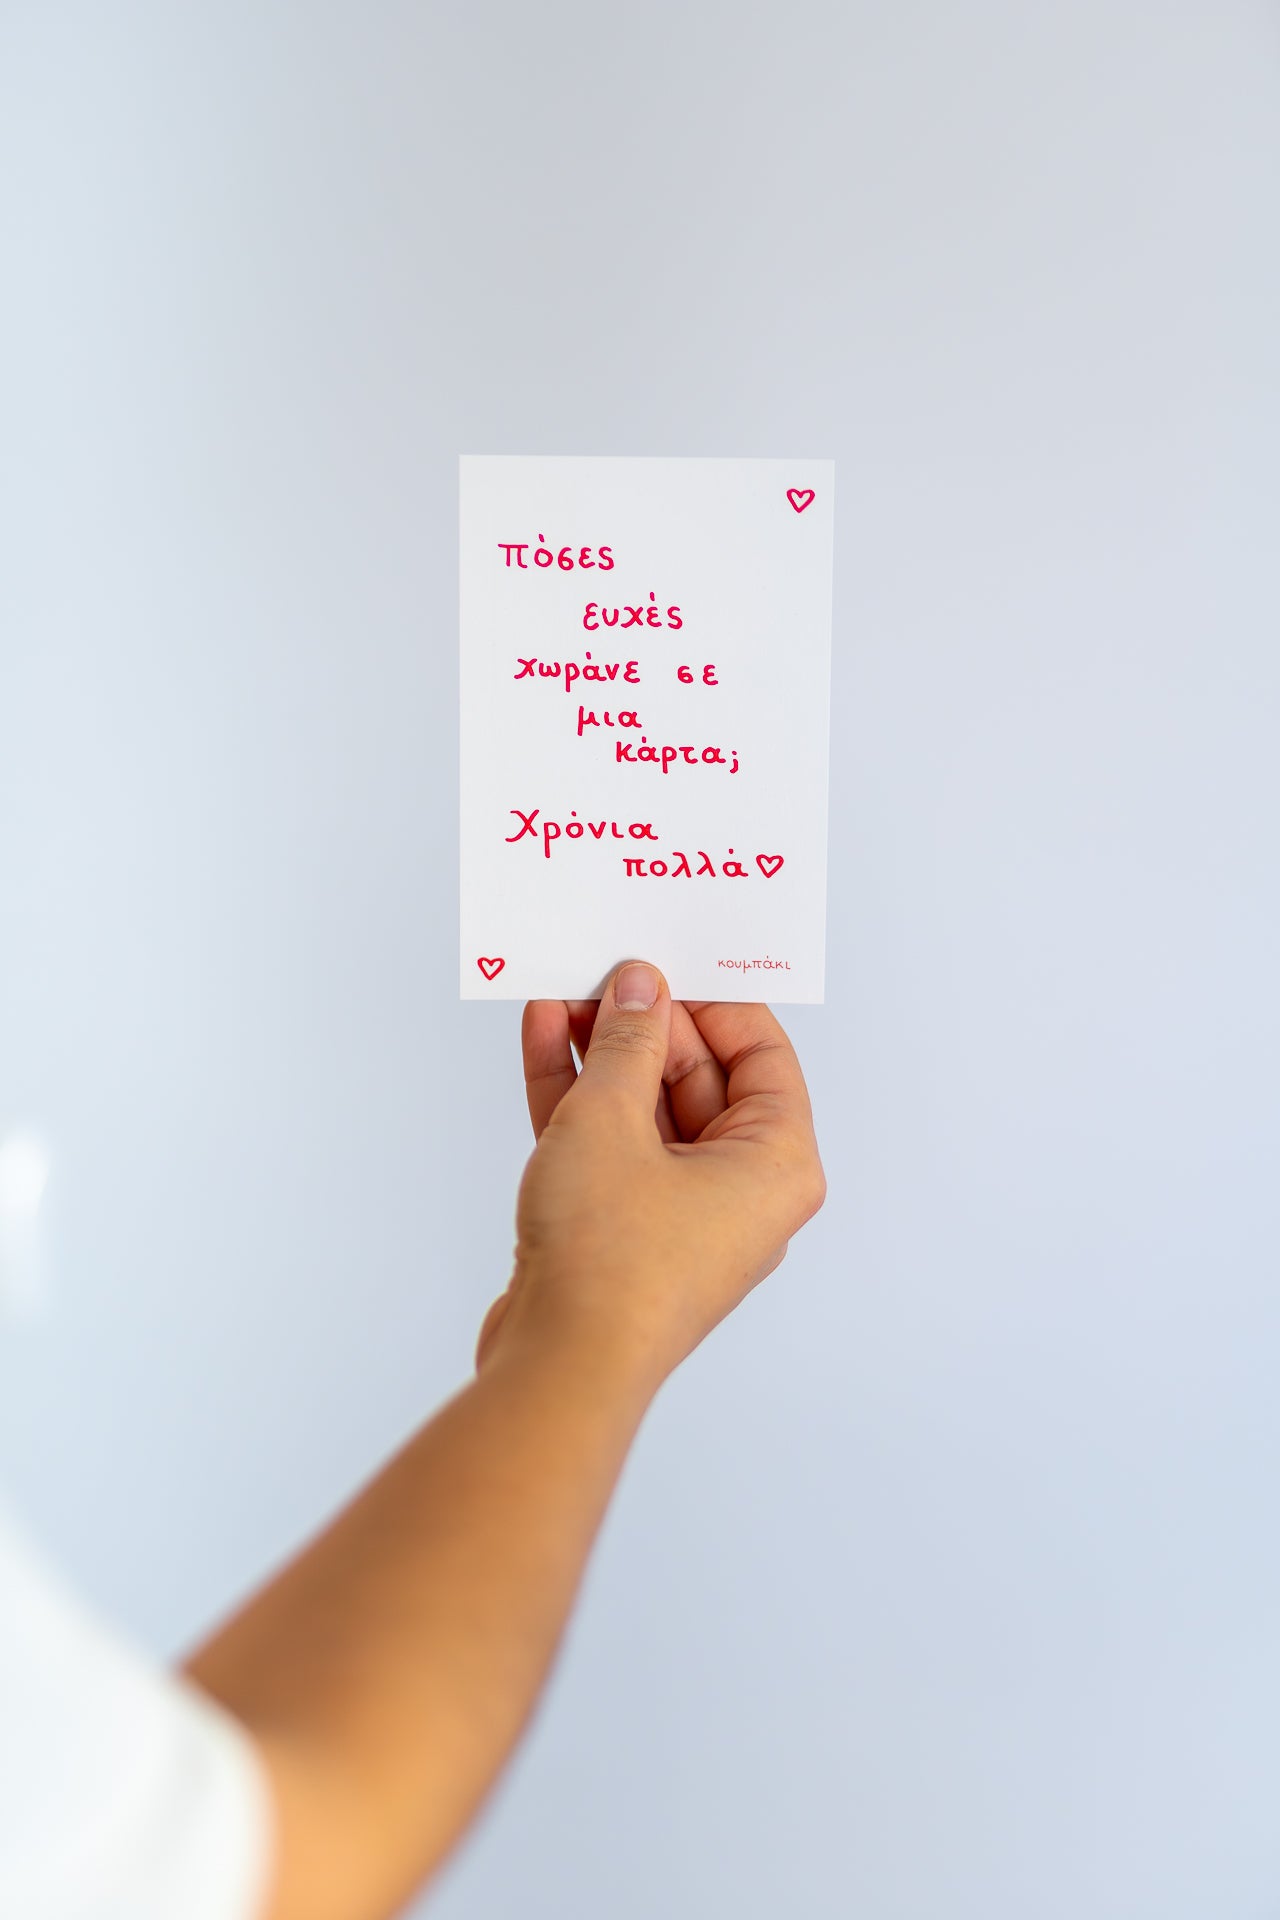 πόσες
ευχές
χωράνε σε
μια
κάρτα;
Χρόνια
πολλά♡
κουμπάκι